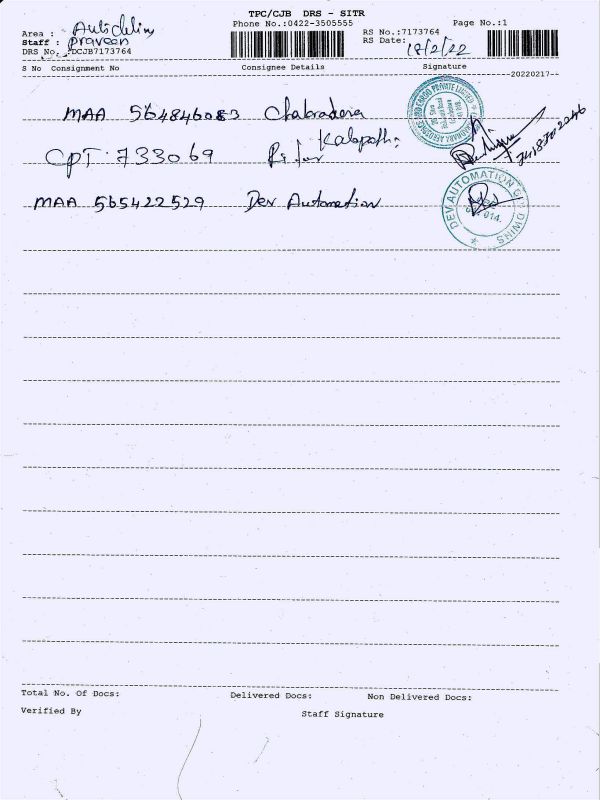 TPC/CJB DRS - SITR
Phone No.:0422-3505555
Page No.:1
Area :
Staff : praveen
DRS No.:DCJB7173764
RS No.:7173764
RS Date: 18/2/22
S No Consignment No Consignee Details Signature
20220217--
MAA 564846083
CPT 733069
MAA 565422529 Dev Automation
DEV AUTOMATION
Total No. Of Docs: Delivered Docs: Non Delivered Docs:
Verified By Staff Signature